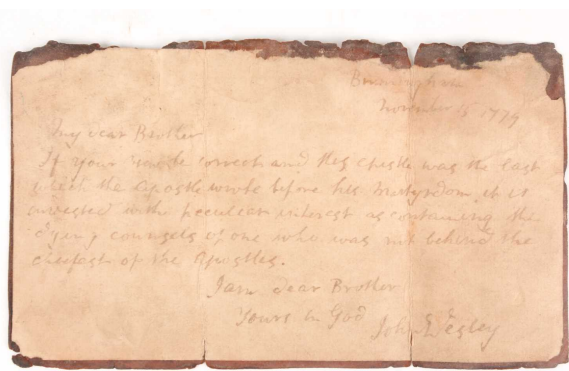 Birmingham
November 1779
My dear Brother
If your be correct and this epistle was the last
which the Apostle wrote before his Martyrdom, it is
invested with peculiar interest as containing the
dying counsels of one who was not behind the
cheifest of the Apostles.
I am dear Brother
Yours in God
John Wesley